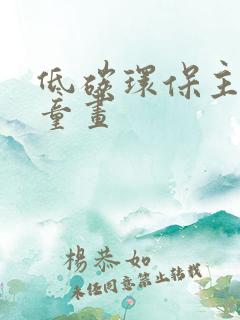 低碳環保主
童畫
楊恭如
未经同意禁止转载